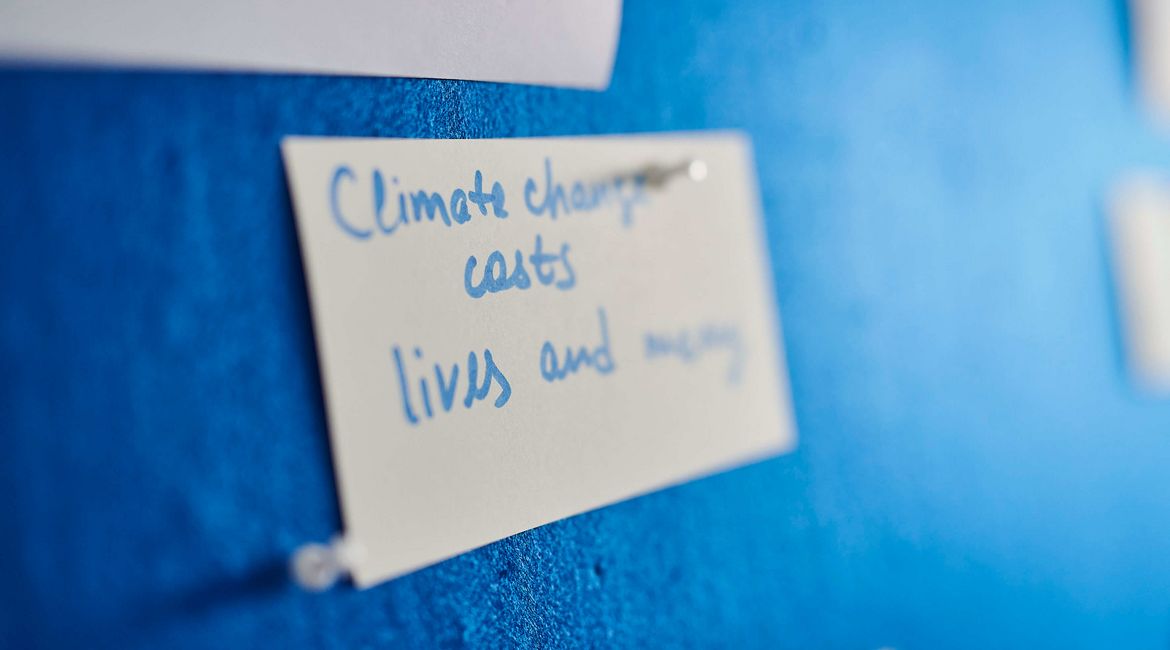 Climate change
costs
lives and money